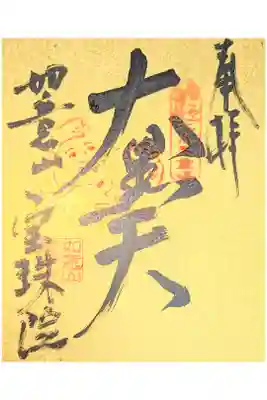 奉拝
大黒天
如意山宝珠院